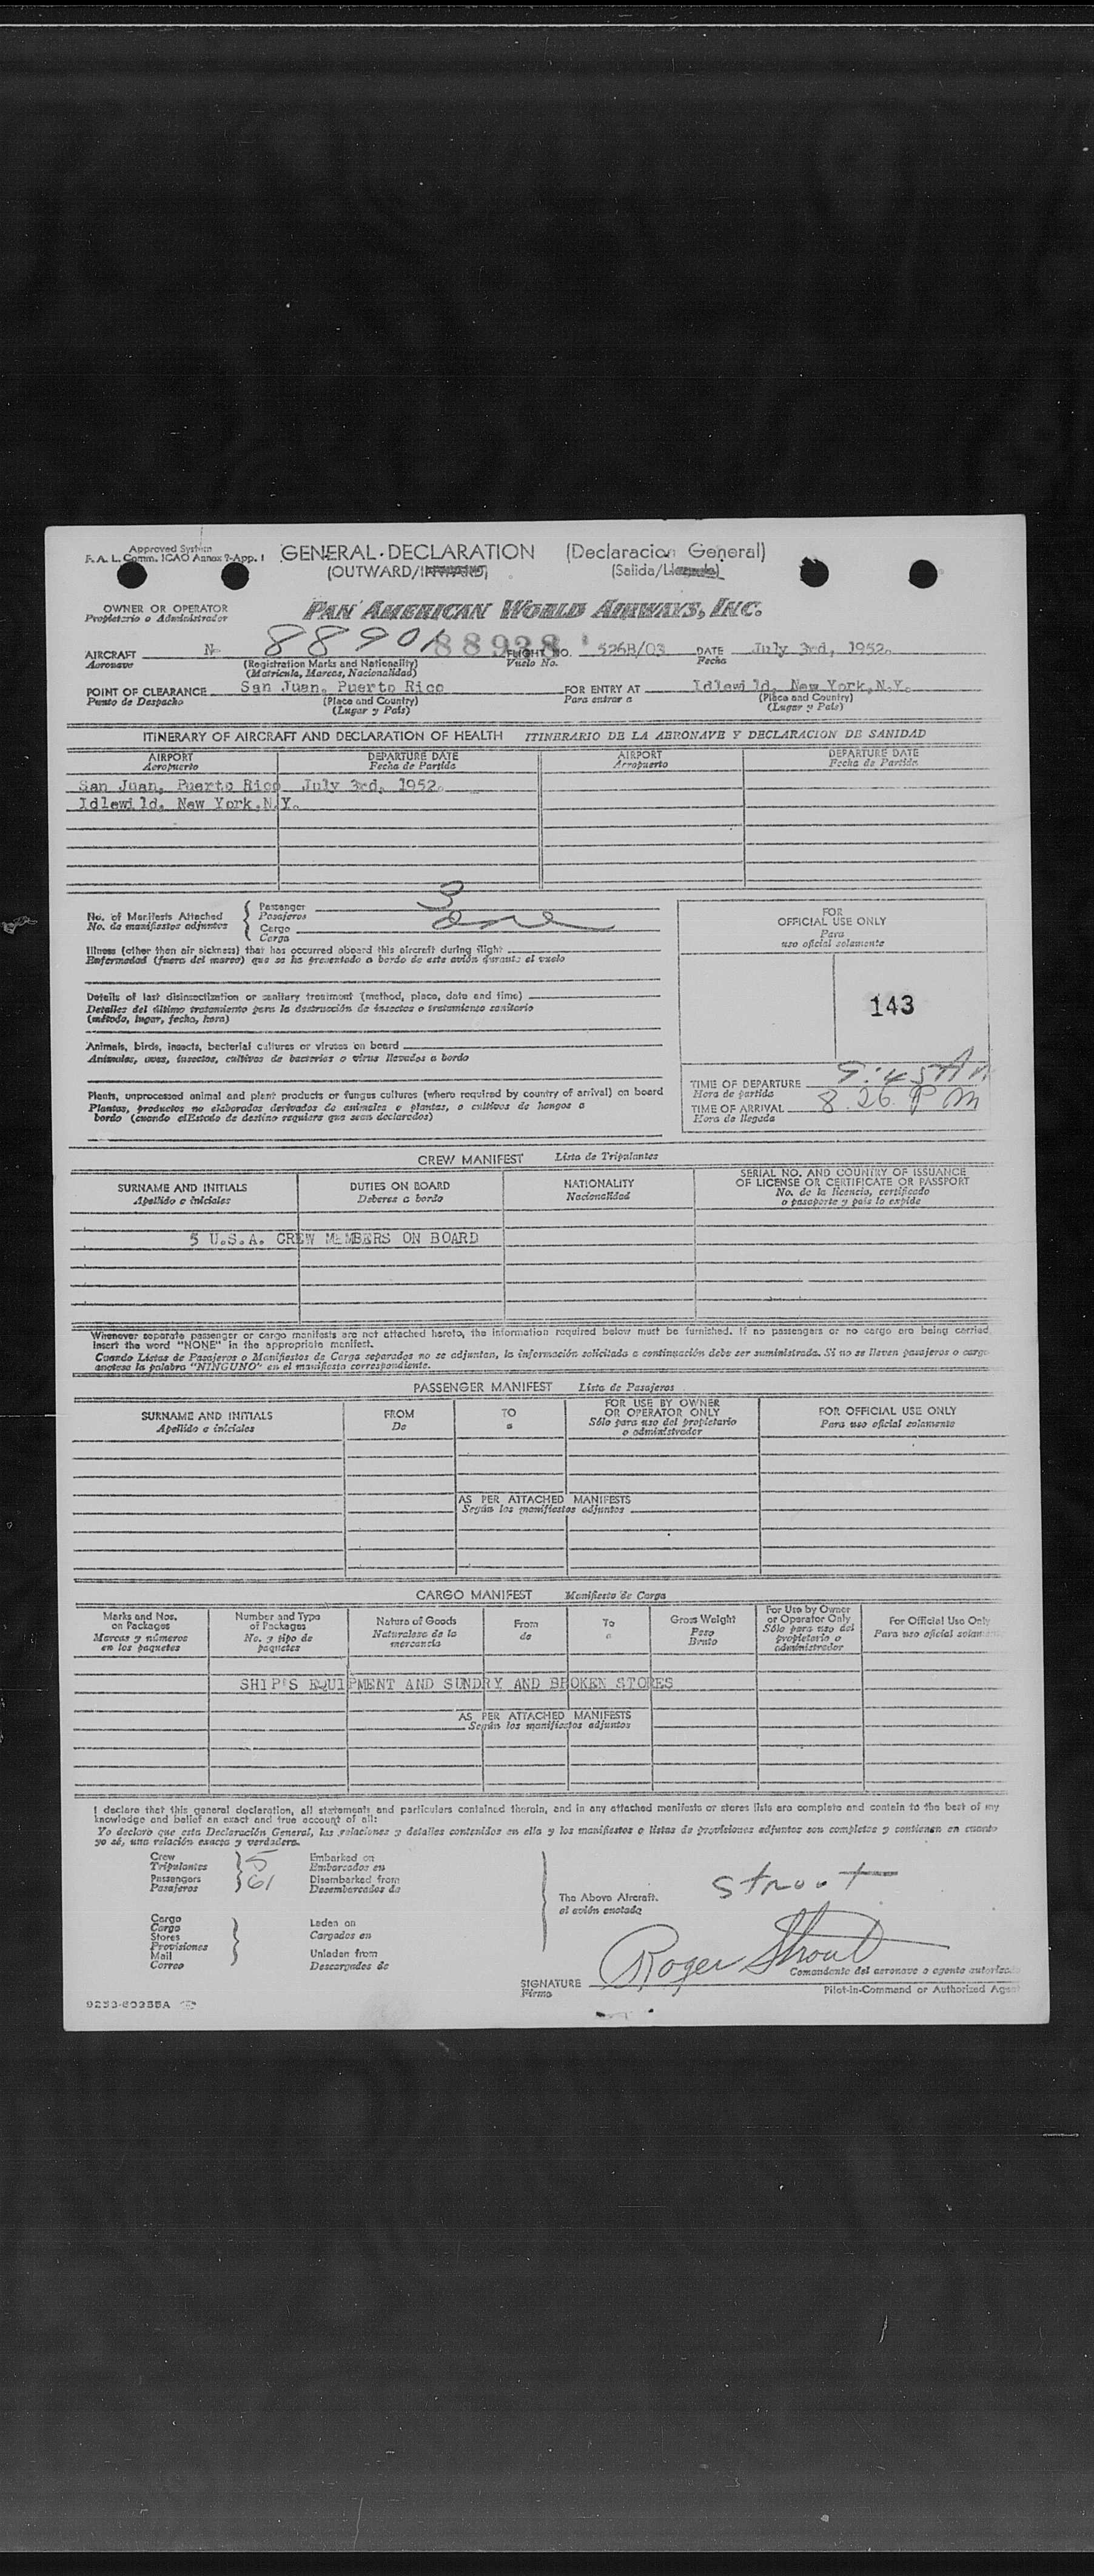 Approved System
F. A. L. Comm. ICAO Annex 9-App. 1
GENERAL DECLARATION (Declaracion General)
(OUTWARD/INWARD) (Salida/Llegada)
OWNER OR OPERATOR
Propietario o Administrador
PAN AMERICAN WORLD AIRWAYS, INC.
AIRCRAFT N- 88901 88938 FLIGHT NO. 526B/03 DATE July 3rd, 1952.
Aeronave (Registration Marks and Nationality) Vuelo No. Fecha
(Matricula, Marcas, Nacionalidad)
POINT OF CLEARANCE San Juan, Puerto Rico FOR ENTRY AT Idlewild, New York,N.Y.
Punto de Despacho (Place and Country) Para entrar a (Place and Country)
(Lugar y País) (Lugar y País)
ITINERARY OF AIRCRAFT AND DECLARATION OF HEALTH ITINERARIO DE LA AERONAVE Y DECLARACION DE SANIDAD
AIRPORT DEPARTURE DATE AIRPORT DEPARTURE DATE
Aeropuerto Fecha de Partida Aeropuerto Fecha de Partida
San Juan, Puerto Rico July 3rd, 1952.
Idlewild, New York,N.Y.
No. of Manifests Attached
No. de manifiestos adjuntos
Passenger 3
Pasajeros
Cargo one
Carga
Illness (other than air sickness) that has occurred aboard this aircraft during flight
Enfermedad (fuera del mareo) que se ha presentado a bordo de este avión durante el vuelo
Details of last disinsectization or sanitary treatment (method, place, date and time)
Detalles del último tratamiento para la destrucción de insectos o tratamiento sanitario
(método, lugar, fecha, hora)
Animals, birds, insects, bacterial cultures or viruses on board
Animales, aves, insectos, cultivos de bacterias o virus llevados a bordo
Plants, unprocessed animal and plant products or fungus cultures (where required by country of arrival) on board
Plantas, productos no elaborados derivados de animales o plantas, o cultivos de hongos a
bordo (cuando elEstado de destino requiera que sean declarados)
FOR
OFFICIAL USE ONLY
Para
uso oficial solamente
143
TIME OF DEPARTURE
Hora de partida
TIME OF ARRIVAL 8.26. PM
Hora de llegada
CREW MANIFEST Lista de Tripulantes
SURNAME AND INITIALS DUTIES ON BOARD NATIONALITY SERIAL NO. AND COUNTRY OF ISSUANCE
OF LICENSE OR CERTIFICATE OR PASSPORT
Apellido e iniciales Deberes a bordo Nacionalidad No. de la licencia, certificado
o pasaporte y país lo expide
5 U.S.A. CREW MEMBERS ON BOARD
Whenever separate passenger or cargo manifests are not attached hereto, the information required below must be furnished. If no passengers or no cargo are being carried
insert the word "NONE" in the appropriate manifest.
Cuando Listas de Pasajeros o Manifiestos de Carga separados no se adjuntan, la información solicitada a continuación debe ser suministrada. Si no se lleven pasajeros o carga
anótese la palabra "NINGUNO" en el manifiesto correspondiente.
PASSENGER MANIFEST Lista de Pasajeros
SURNAME AND INITIALS FROM TO FOR USE BY OWNER
OR OPERATOR ONLY FOR OFFICIAL USE ONLY
Apellido e iniciales De a Sólo para uso del propietario
o administrador Para uso oficial solamente
AS PER ATTACHED MANIFESTS
Según los manifiestos adjuntos
CARGO MANIFEST Manifiesto de Carga
Marks and Nos.
on Packages
Marcas y números
en los paquetes
Number and Type
of Packages
No. y tipo de
paquetes
Nature of Goods
Naturaleza de la
mercancía
From
de
To
a
Gross Weight
Peso
Bruto
For Use by Owner
or Operator Only
Sólo para uso del
propietario o
administrador
For Official Use Only
Para uso oficial solam
SHIP'S EQUIPMENT AND SUNDRY AND BROKEN STORES
AS PER ATTACHED MANIFESTS
Según los manifiestos adjuntos
I declare that this general declaration, all statements and particulars contained therein, and in any attached manifests or stores lists are complete and contain to the best of my
knowledge and belief an exact and true account of all:
Yo declaro que esta Declaración General, las relaciones y detalles contenidos en ella y los manifiestos o listas de provisiones adjuntos son completos y contienen en cuanto
yo sé, una relación exacta y verdadera.
Crew 5 Embarked on
Tripulantes Embarcados en
Passengers 61 Disembarked from
Pasajeros Desembarcados de
Cargo
Cargo
Stores
Provisiones
Mail
Correo
Laden on
Cargados en
Unladen from
Descargados de
The Above Aircraft.
el avión anotado
Strout
Roger Strout
Comandante del aeronave o agente autoriza
SIGNATURE
Firma
Pilot-in-Command or Authorized Agent
9253-60355A